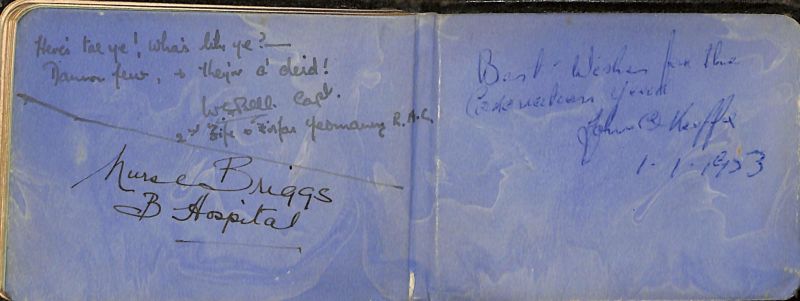 Here's tae ye! Wha's like ye? —
Damn few, & they're a' deid!
Capt.
2nd Fife & Forfar Yeomanry R.A.C.
Nurse Briggs
B Hospital
Best Wishes for the
Coronation Year
John O'Keeffe
1-1-1953